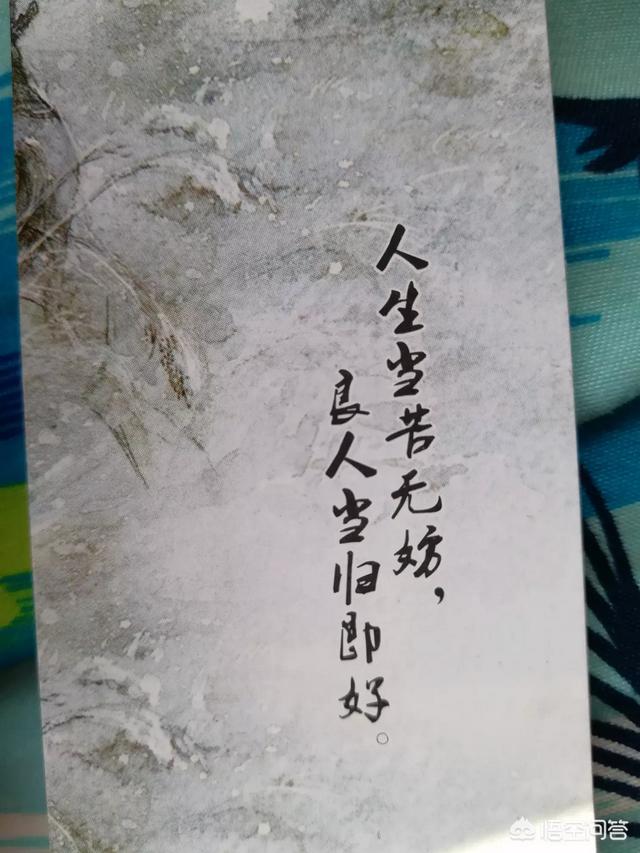 人生当苦无妨，
良人当归即好。
悟空问答